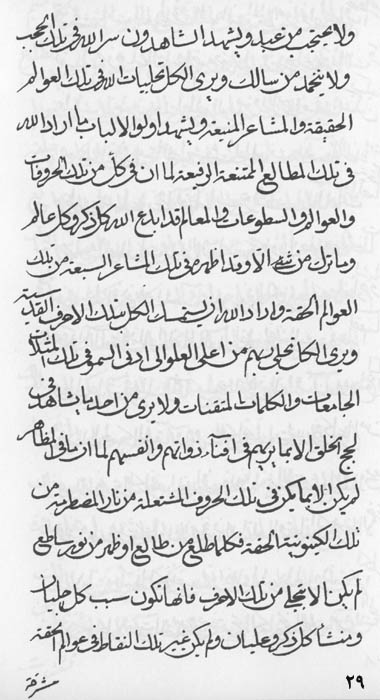 ولا يحتجب من عبد ويشهد الشاهدون سر الله في تلك الحجب
ولا ينجمد من سالك ويرى الكل تجليات الله في تلك العوالم
الحقيقة والمشاعر المنيعة ويشهد اولوا الالباب ما اراد الله
في تلك المطالع الممتنعة الرفيعة لما ان في كل من تلك الحروفات
والعوالم والسطوعات والمعالم قد ابدع الله كل ذكر وكل عالم
وما نزل من شيء الا وقد اظهر في تلك المشاعر السبعة من تلك
العوالم الحقة واراد الله ان يتمسك الكل بتلك الاحرف القدسية
ويرى الكل تجلى ربهم من اعلى العلو الى ادنى السمو في تلك
الجامعيات والكلمات المتقنات ولا يرى من احد ما يشاهد في
لجج الخلق الا بما يريهم في افئدة ذواتهم وانفسهم لما ان في المظاهر
لم يكن الا بما يكن في تلك الحروف المشتعلة من نار المضطرمة من
تلك الكينونية الحقة فكلما طلع من طالع او ظهر من نور ساطع
لم يكن الا تجلى من تلك الاحرف فانها تكون سبب كل
ومنشا كل ذكر وعليان ولم يكن غير تلك النقاط في عوالم الحقة
مشرقة
٢٩